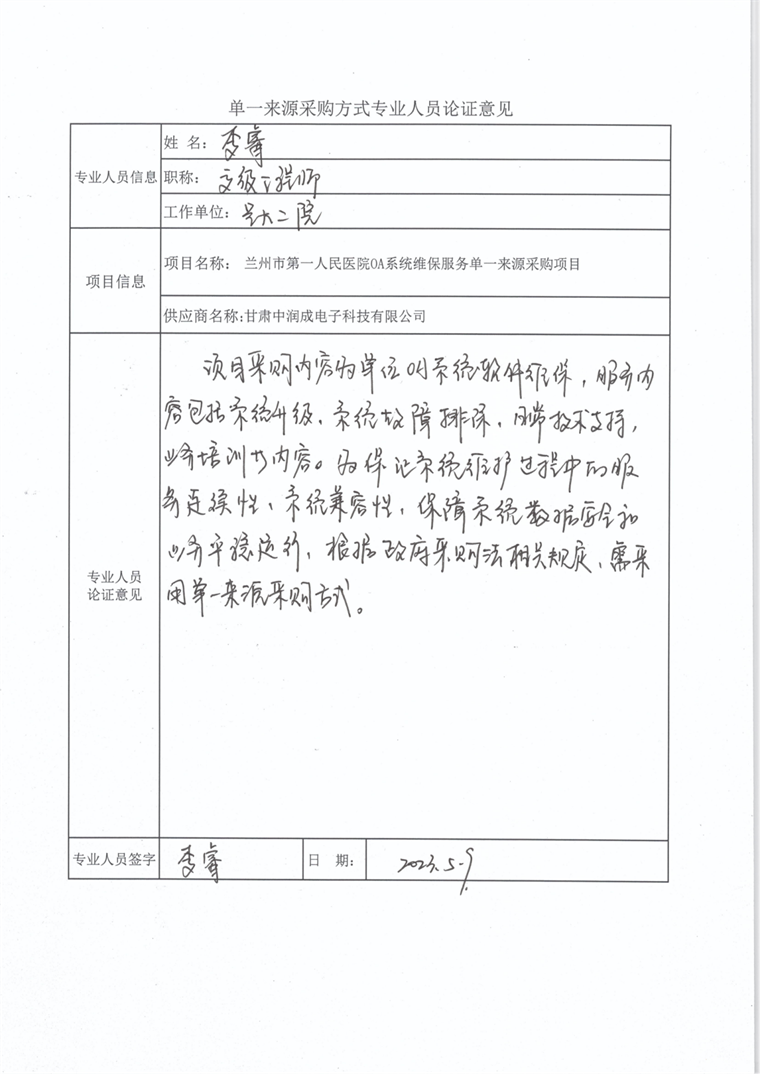 单一来源采购方式专业人员论证意见
专业人员信息
姓 名：李睿
职称：高级工程师
工作单位：兰大二院
项目信息
项目名称： 兰州市第一人民医院OA系统维保服务单一来源采购项目
供应商名称:甘肃中润成电子科技有限公司
专业人员
论证意见
项目采购内容为单位OA系统软件维保，服务内
容包括系统升级、系统故障排除、日常技术支持，
业务培训等内容。为保证系统维护过程中的服
务连续性、系统兼容性，保障系统数据安全和
业务平稳运行，根据政府采购法相关规定，需采
用单一来源采购方式。
专业人员签字
李睿
日 期：
2023.5.9